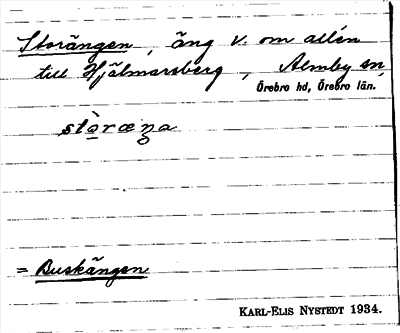 Storängen, äng v. om allén
till Hjälmarsberg, Almby sn,
Örebro hd, Örebro län.
= Buskängen
KARL-ELIS NYSTEDT 1934.